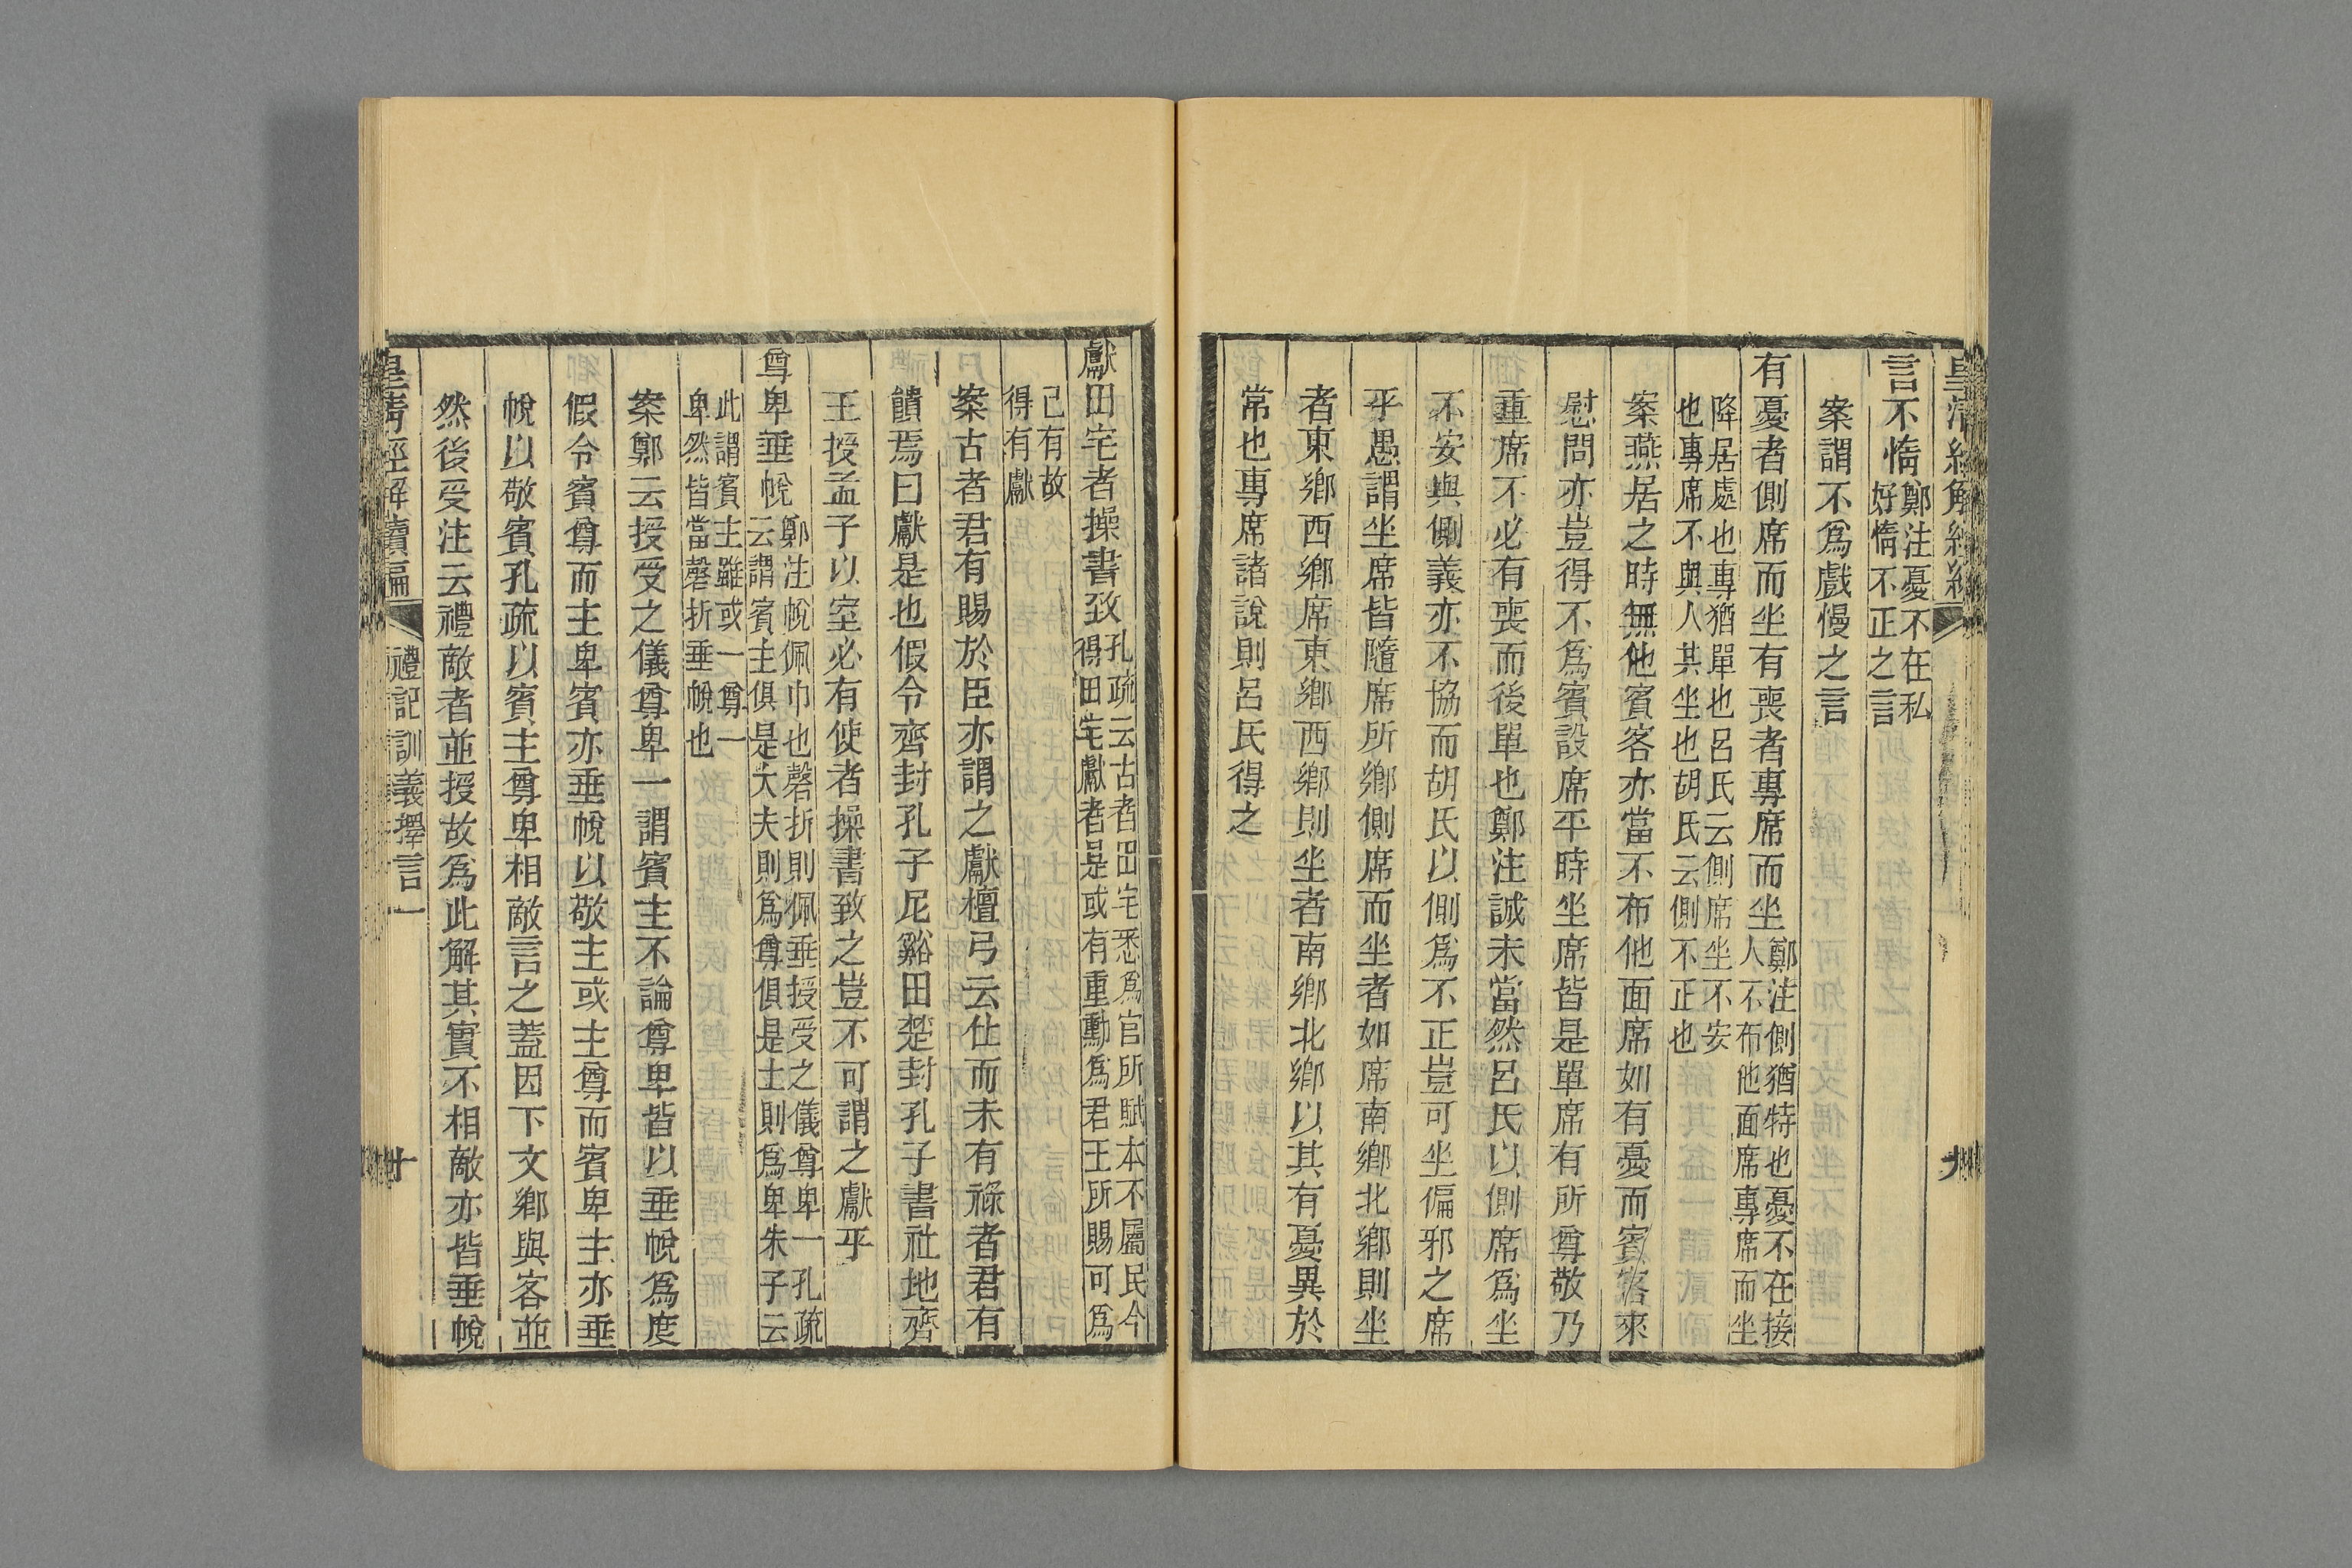 言不惰鄭注憂不在私
好惰不正之言
案謂不爲戲慢之言
有憂者側席而坐有喪者專席而坐鄭注側猶特也憂不在接
人不布他面席專席而坐
降居處也專猶單也呂氏云側席坐不安
也專席不與人共坐也胡氏云側不正也
案燕居之時無他賓客亦當不布他面席如有憂而賓客來
慰問亦豈得不爲賓設席平時坐席皆是單席有所尊敬乃
重席不必有喪而後單也鄭注誠未當然呂氏以側席爲坐
不安與側義亦不協而胡氏以側爲不正豈可坐偏邪之席
乎愚謂坐席皆隨席所鄉側席而坐者如席南鄉北鄉則坐
者東鄉西鄉席東鄉西鄉則坐者南鄉北鄉以其有憂異於
常也專席諸說則呂氏得之
獻田宅者操書致孔疏云古者田宅悉爲官所賦本不屬民今
得田宅獻者是或有重勳爲君王所賜可爲
已有故
得有獻
案古者君有賜於臣亦謂之獻檀弓云仕而未有祿者君有
饋焉曰獻是也假令齊封孔子尼谿田楚封孔子書社地齊
王授孟子以室必有使者操書致之豈不可謂之獻乎
尊卑垂帨鄭注帨佩巾也磬折則佩垂授受之儀尊卑一孔疏
云謂賓主俱是大夫則爲尊俱是士則爲卑朱子云
此謂賓主雖或一尊一
卑然皆當磬折垂帨也
案鄭云授受之儀尊卑一謂賓主不論尊卑皆以垂帨爲度
假令賓尊而主卑賓亦垂帨以敬主或主尊而賓卑主亦垂
帨以敬賓孔疏以賓主尊卑相敵言之蓋因下文鄉與客並
然後受注云禮敵者並授故爲此解其實不相敵亦皆垂帨
皇清經解續編 禮記訓義擇言一 十